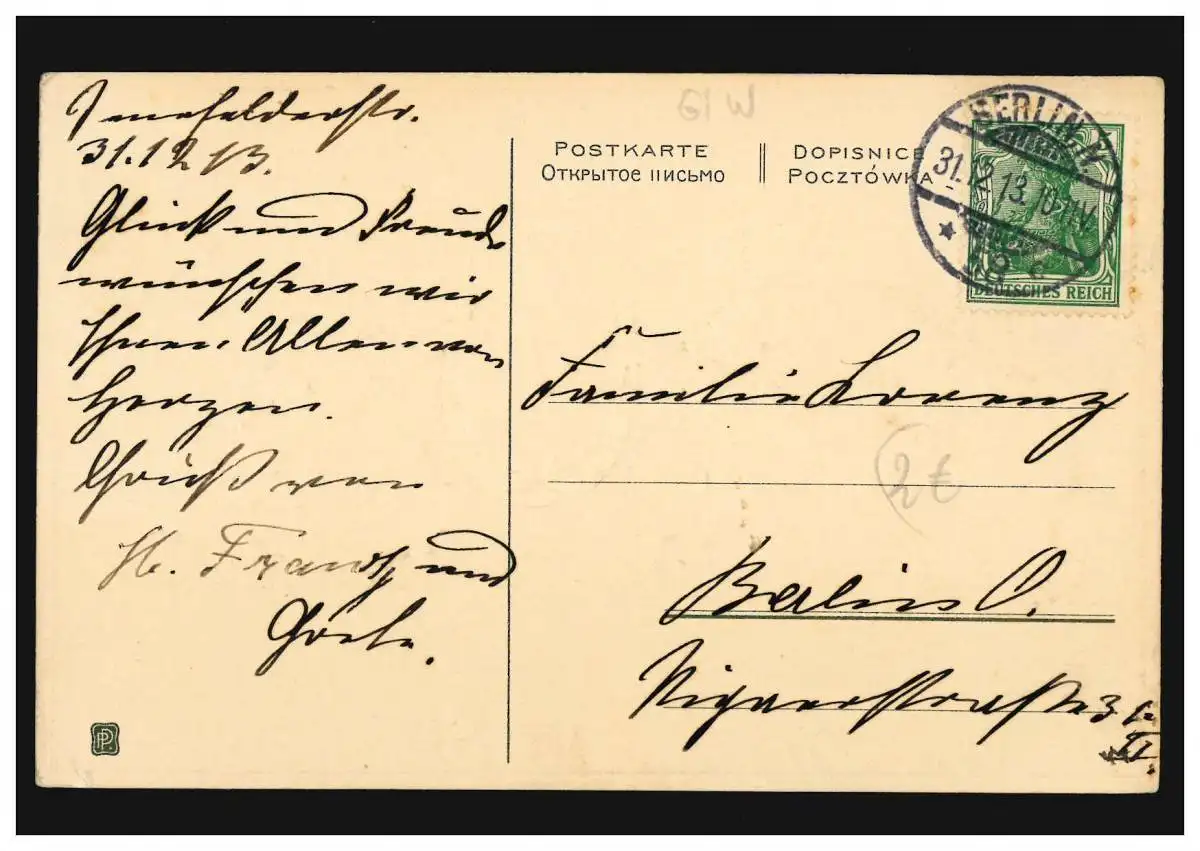 31.12.13.
Glück und Freude
wünschen wir
Ihnen Allen von
Herzen.
Gruß von
und
61 W
POSTKARTE
ОТКРЫТОЕ ПИСЬМО
DOPISNICE
POCZTÓWKA
BERLIN, W.
31.12.13.10-11V.
DEUTSCHES REICH
Familie Lorenz
2 €
Berlin O.
Rigaerstraße 3
II.
PP